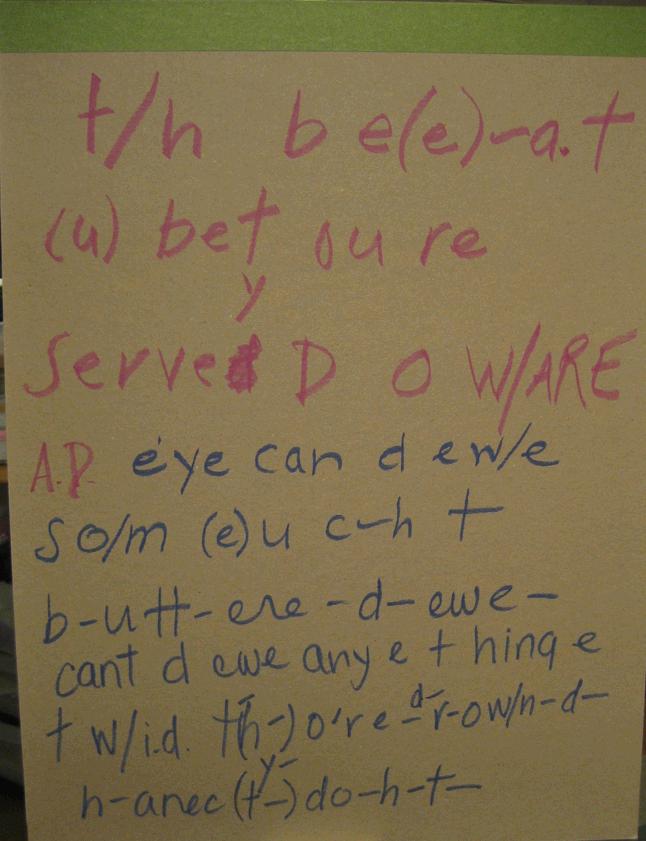 t/h b e(e)-a.t
(u) bet ou re
y
Served D O W/ARE
A.D. eye can d ew/e
so/m (e)u c-h t
b-utt-ere-d-ewe-
cant d ewe any e t hing e
t w/i.d. t(h-)o're-d-r-ow/n-d-
y-
h-anec(t-)do-h-t-